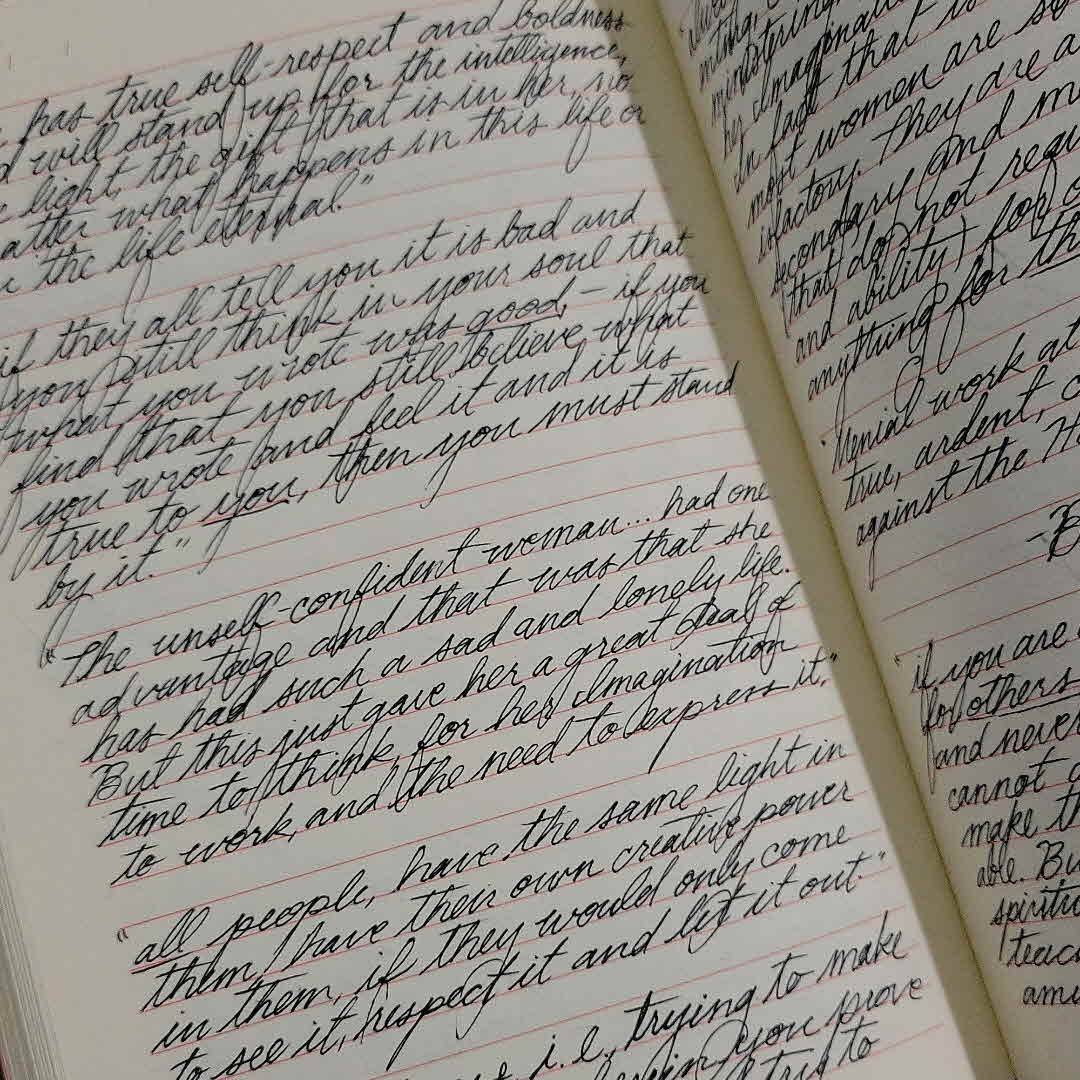 has true self-respect and boldness
will stand up for the intelligence,
light, the gift that is in her, no
atter what happens in this life or
the life eternal."
if they all tell you it is bad and
you still think in your soul that
what you wrote was good, - if you
find that you still believe what
you wrote and feel it and it is
true to you, then you must stand
by it."
"The unself-confident woman... had one
advantage and that was that she
has had such a sad and lonely life.
But this just gave her a great deal of
time to think, for her Imagination
to work, and the need to express it."
"all people, have the same light in
them, have their own creative power
in them, if they would only come
to see it, respect it and let it out."
i.e., trying to make
you prove
to
ministering
her Imagination
In fact that is
most women are
isfactory. They are a
secondary and me
(that do not requ
and ability) for o
anything for th
"Menial work at
true, ardent, c
against the H
"if you are
for others
and never
cannot
make th
able. Bu
spiritu
teac